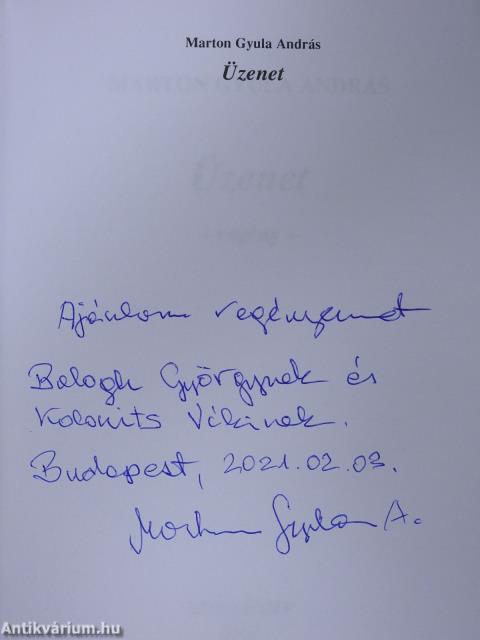 Marton Gyula András
Üzenet
MARTON GYULA ANDRÁS
Üzenet
- regény -
Ajánlom regényemet
Balogh Györgynek és
Kolonits Vikinek.
Budapest, 2021.02.03.
Marton Gyula A.
Antikvárium.hu